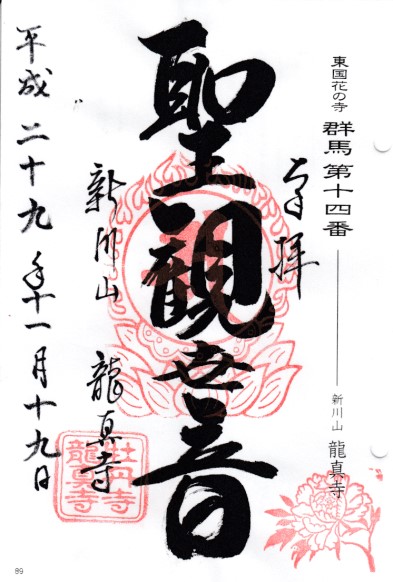 東国花の寺 群馬第十四番 新川山 龍真寺
奉拝
聖観世音
新川山 龍真寺
平成二十九年十一月十九日
牡丹寺
龍真寺
89